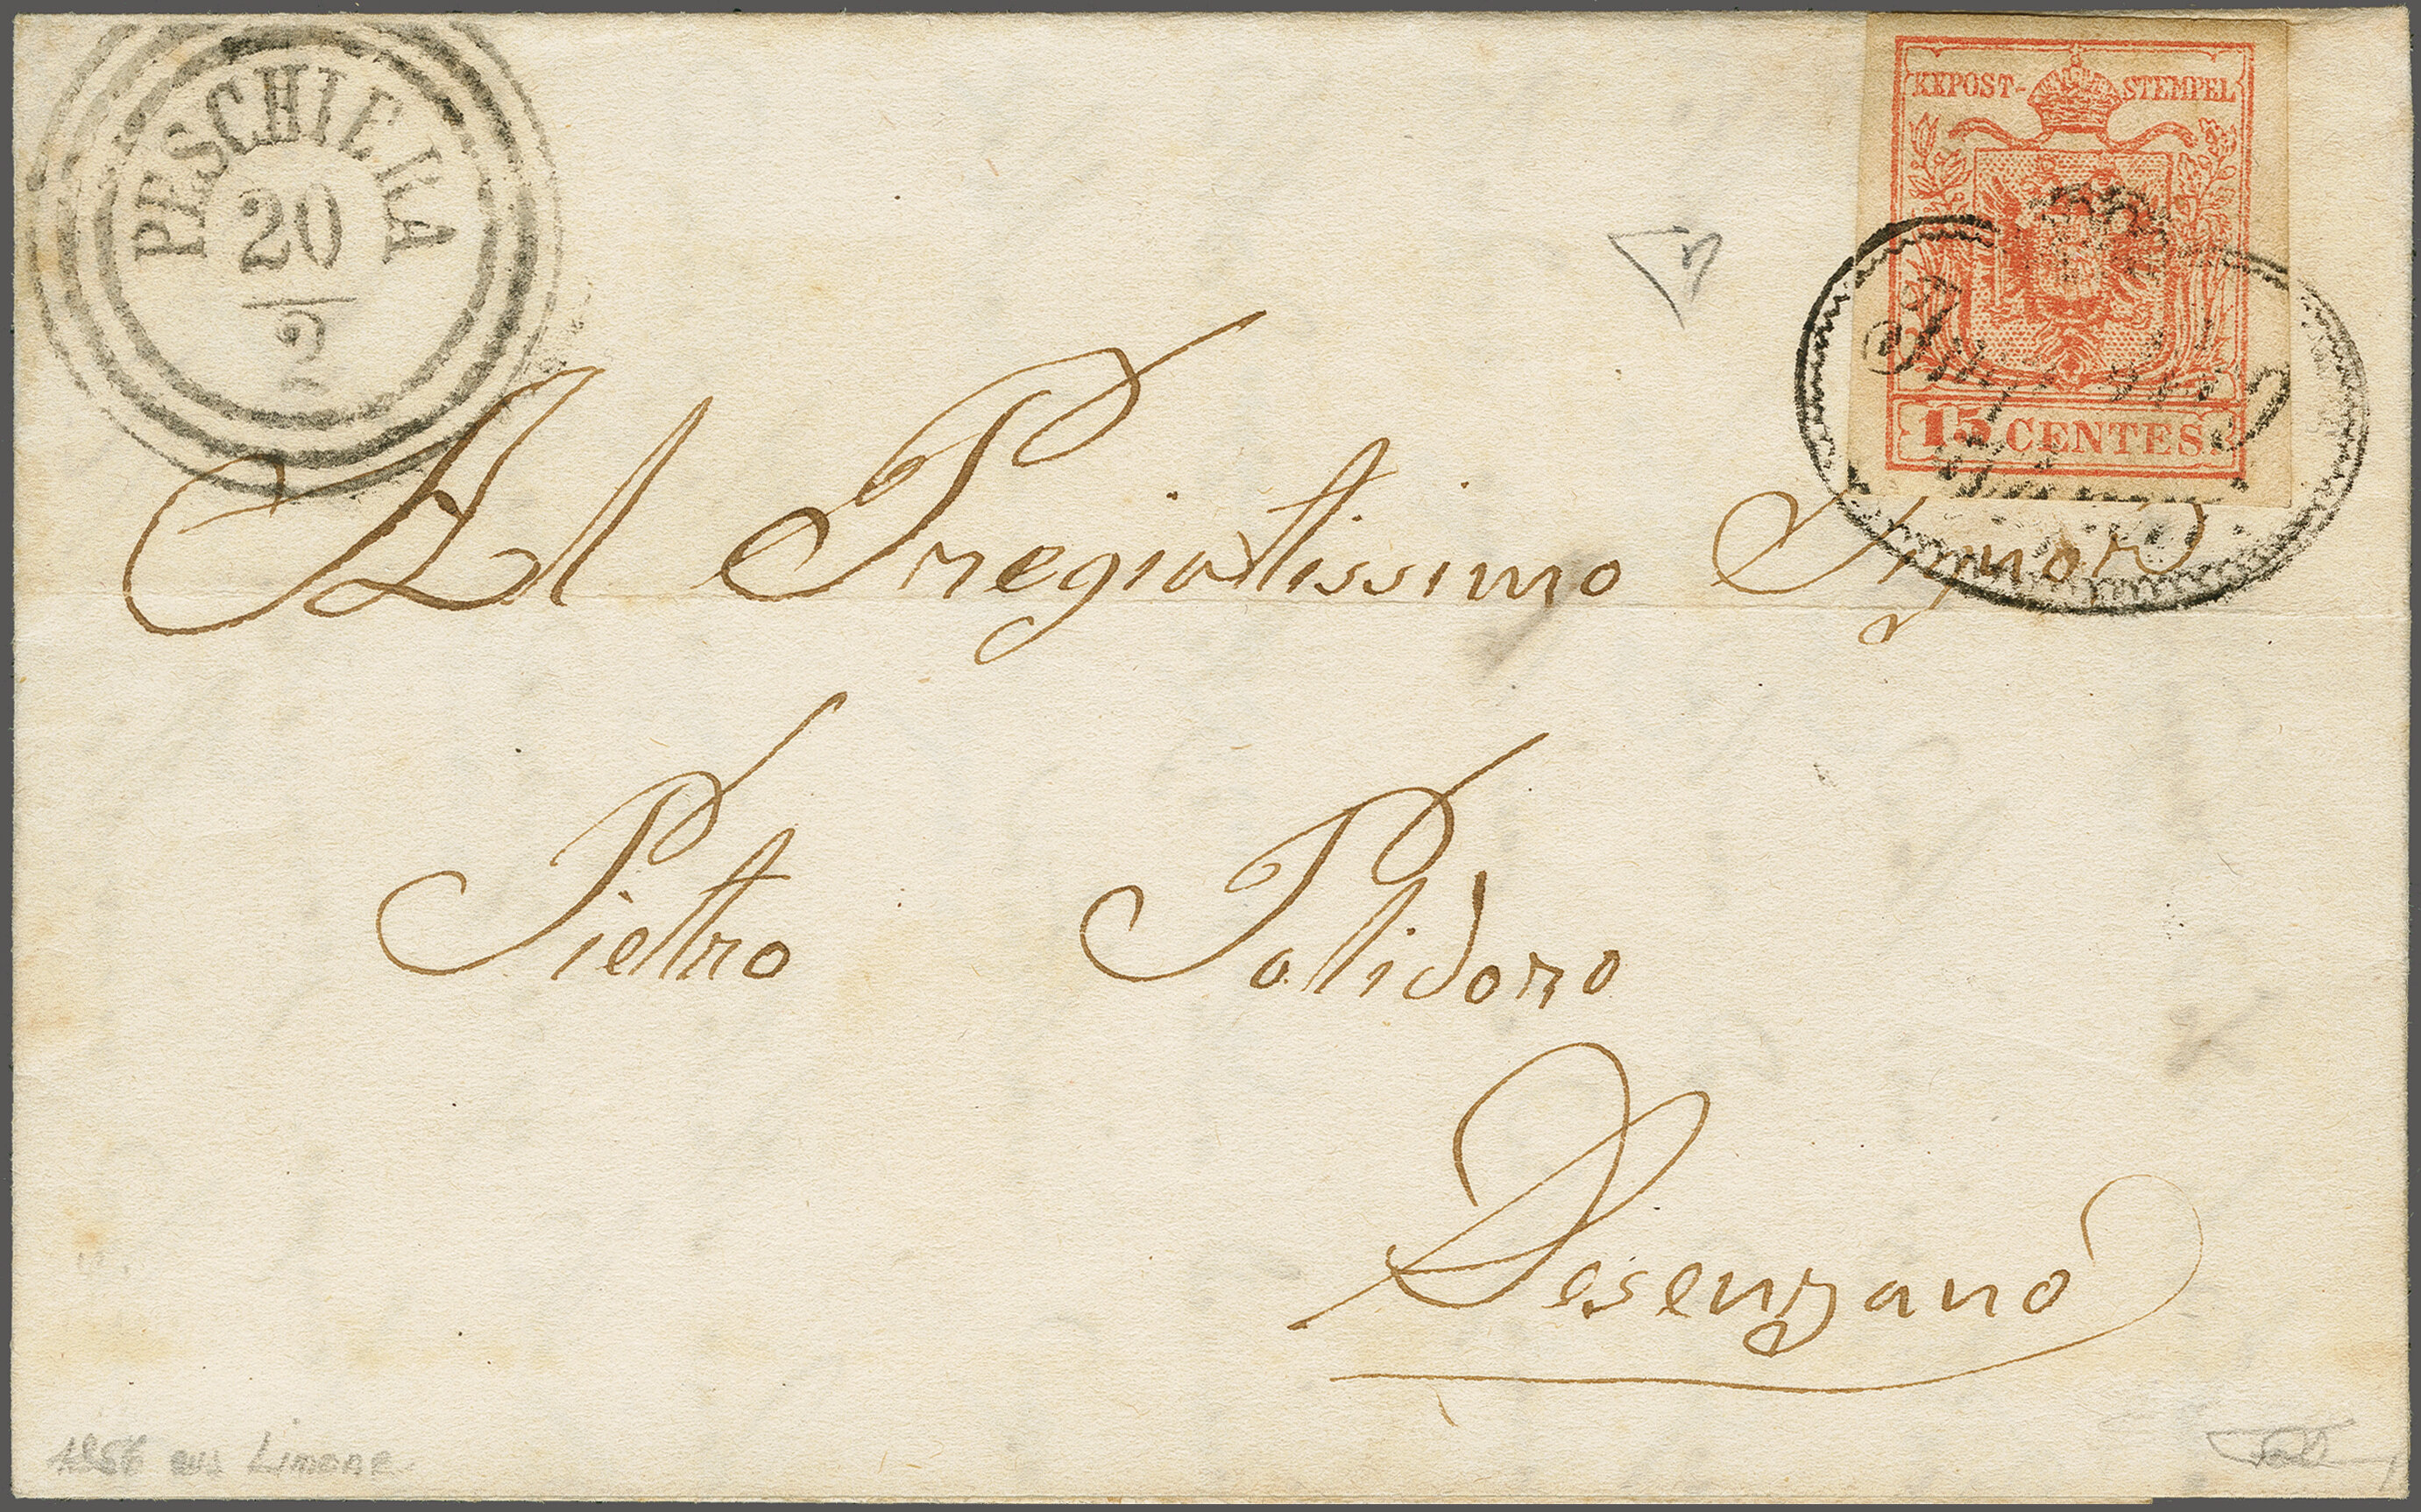 PESCHIERA
20
2
KKPOST-STEMPEL
15 CENTES.
Al Pregiatissimo Signor
Pietro Pollidoro
Desenzano
1856 aus Limone